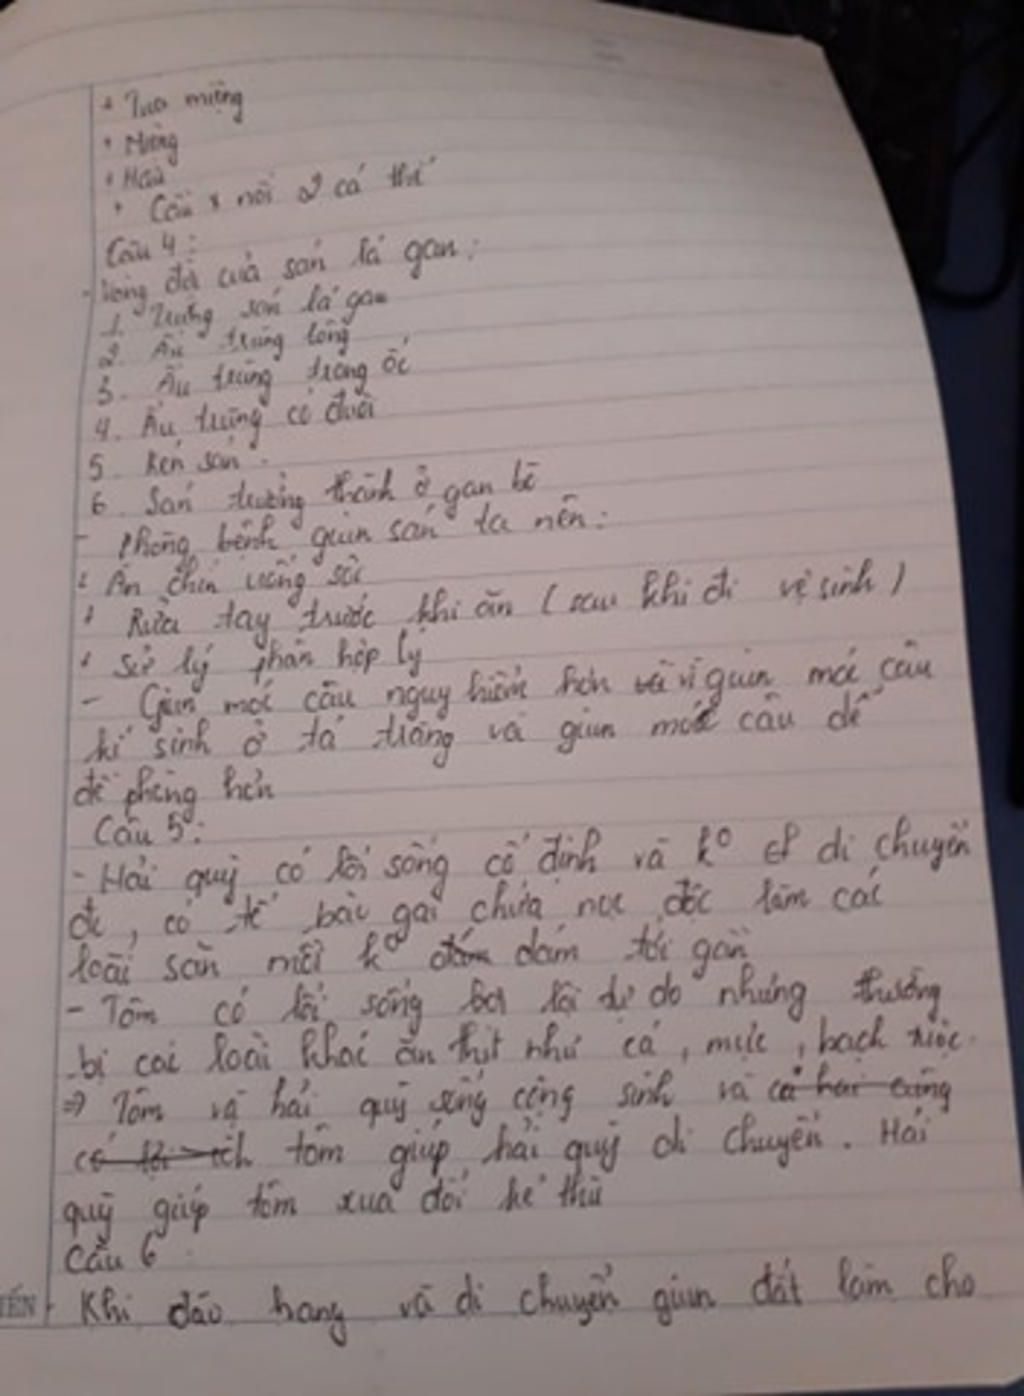 + Tua miệng
+ Miệng
+ Hầu
+ Cầu nối 2 cá thể
Câu 4:
- Vòng đời của sán lá gan:
1. Trứng sán lá gan
2. Ấu trùng lông
3. Ấu trùng trong ốc
4. Ấu trùng có đuôi
5. Kén sán.
6. Sán trưởng thành ở gan bò
- Phòng bệnh giun sán ta nên:
+ Ăn chín uống sôi
+ Rửa tay trước khi ăn (sau khi đi vệ sinh)
+ Sử lý phân hợp lý
- Giun móc câu nguy hiểm hơn vì giun móc câu
kí sinh ở tá tràng và giun móc câu dễ
đề phòng hơn
Câu 5:
- Hải quỳ có lối sống cố định và k⁰ di chuyển
đc, có tế bào gai chứa nọc độc làm các
loài săn mồi k⁰ dám tới gần
- Tôm có lối sống bơi lội tự do nhưng thường
bị các loài khác ăn thịt như cá, mực, bạch tuộc.
=> Tôm và hải quỳ sống cộng sinh và cả hai cùng
có lợi ích tôm giúp hải quỳ di chuyển. Hải
quỳ giúp tôm xua đổi kẻ thù
Câu 6:
- Khi đào hang và di chuyển giun đất làm cho